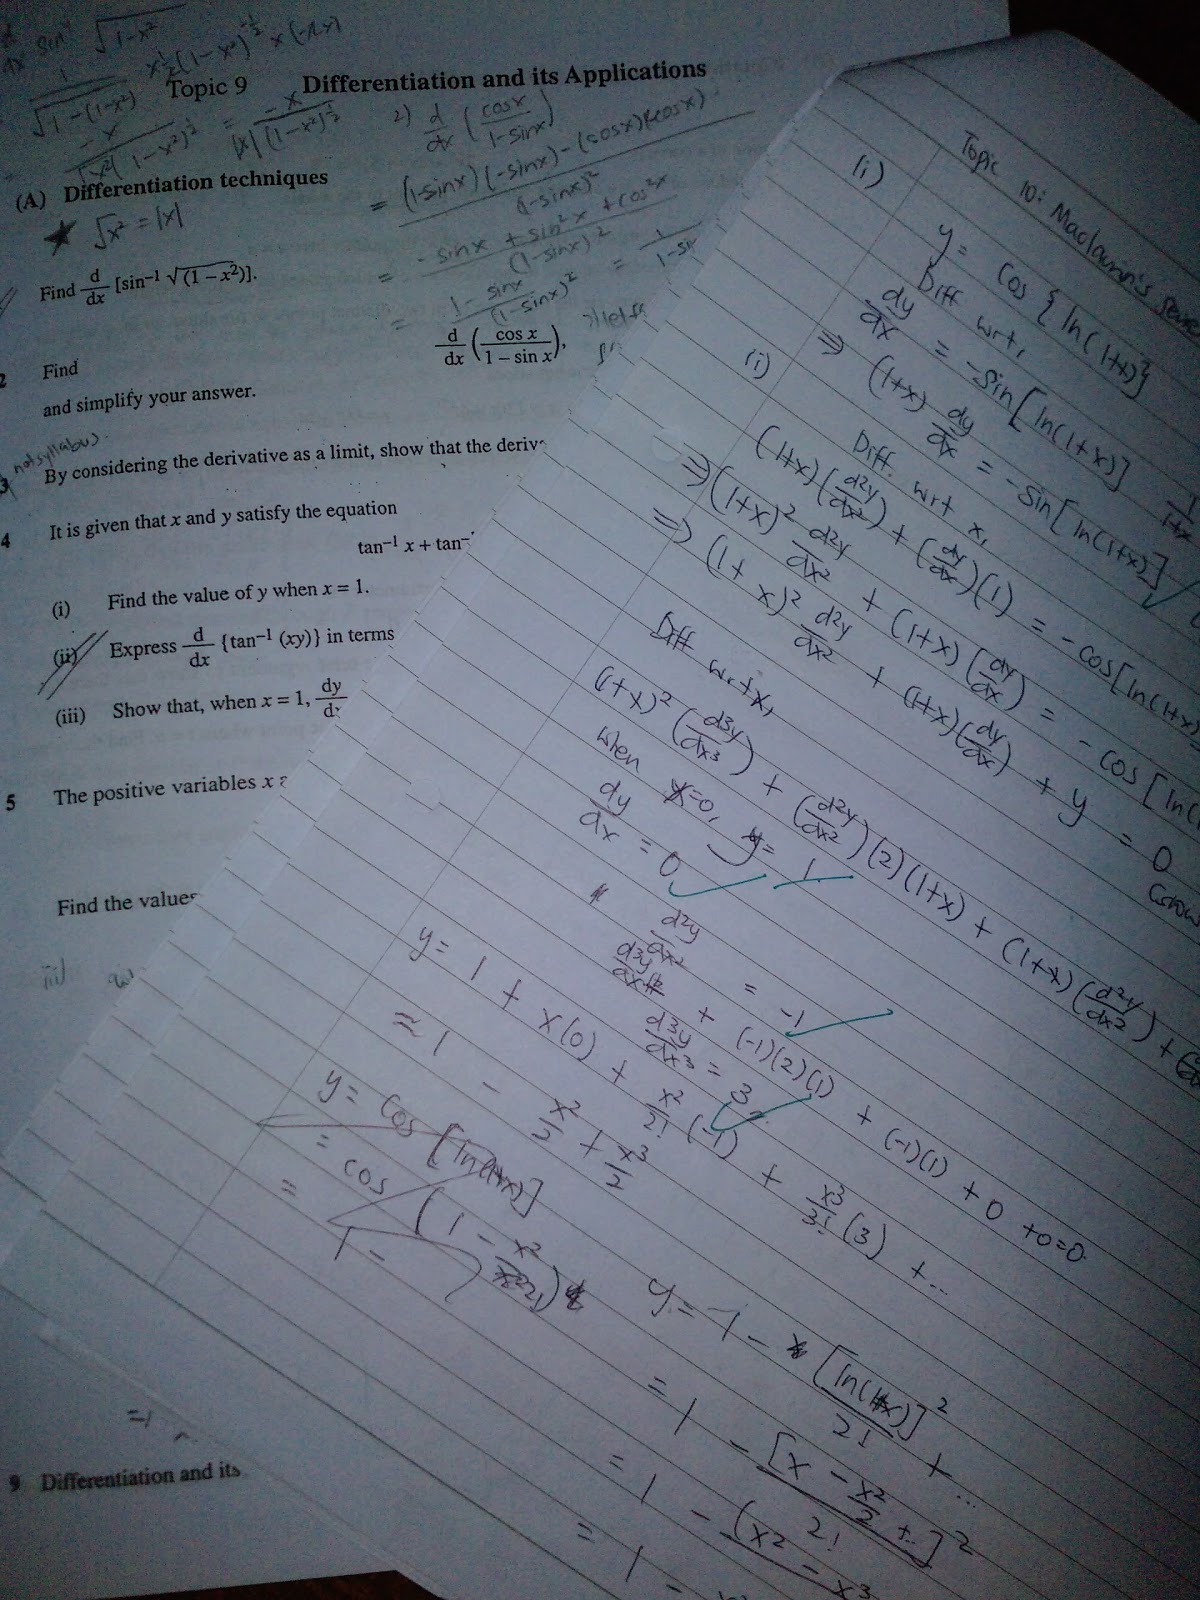 Topic 9 Differentiation and its Applications
2) d/dx (cosx/1-sinx)
= (1-sinx)(-sinx)-(cosx)(-cosx) / (1-sinx)²
= -sinx + sin²x + cos²x / (1-sinx)²
= 1-sinx / (1-sinx)² = 1/1-si
(A) Differentiation techniques
★ √x² = |x|
Find d/dx [sin⁻¹ √(1 – x²)].
2 Find
d/dx (cos x / 1 – sin x),
and simplify your answer.
not syllabus.
3 By considering the derivative as a limit, show that the deriv
4 It is given that x and y satisfy the equation
tan⁻¹ x + tan⁻
(i) Find the value of y when x = 1.
(ii) Express d/dx {tan⁻¹ (xy)} in terms
(iii) Show that, when x = 1, dy/d
5 The positive variables x
Find the values
iii)
9 Differentiation and its
Topic 10: Maclaurin's
(i) y = cos {ln(1+x)}
Diff wrt,
dy/dx = -sin[ln(1+x)] 1/1+x
⇒ (1+x) dy/dx = -sin[ln(1+x)]
(i) Diff. wrt x,
(1+x)(d²y/dx²) + (dy/dx)(1) = -cos[ln(1+x)
⇒ (1+x)² d²y/dx² + (1+x)(dy/dx) = -cos[ln(
⇒ (1+x)² d²y/dx² + (1+x)(dy/dx) + y = 0
Diff wrt x,
(1+x)² (d³y/dx³) + (d²y/dx²)(2)(1+x) + (1+x)(d²y/dx²) +
when x=0, y = 1
dy/dx = 0
d²y/dx² = -1
d³y/dx³ + (-1)(2)(1) + (-1)(1) + 0 + 0 = 0
d³y/dx³ = 3
y = 1 + x(0) + x²/2! (-1) + x³/3! (3) + ...
≈ 1 - x²/2 + x³/2
y = cos [ln(1+x)]
= cos (1 - x²/2!)
= 1 -
y = 1 - [ln(1+x)]²/2! + ...
= 1 - [x - x²/2 + ..]²/2!
= 1 - (x² - x³
= 1 -